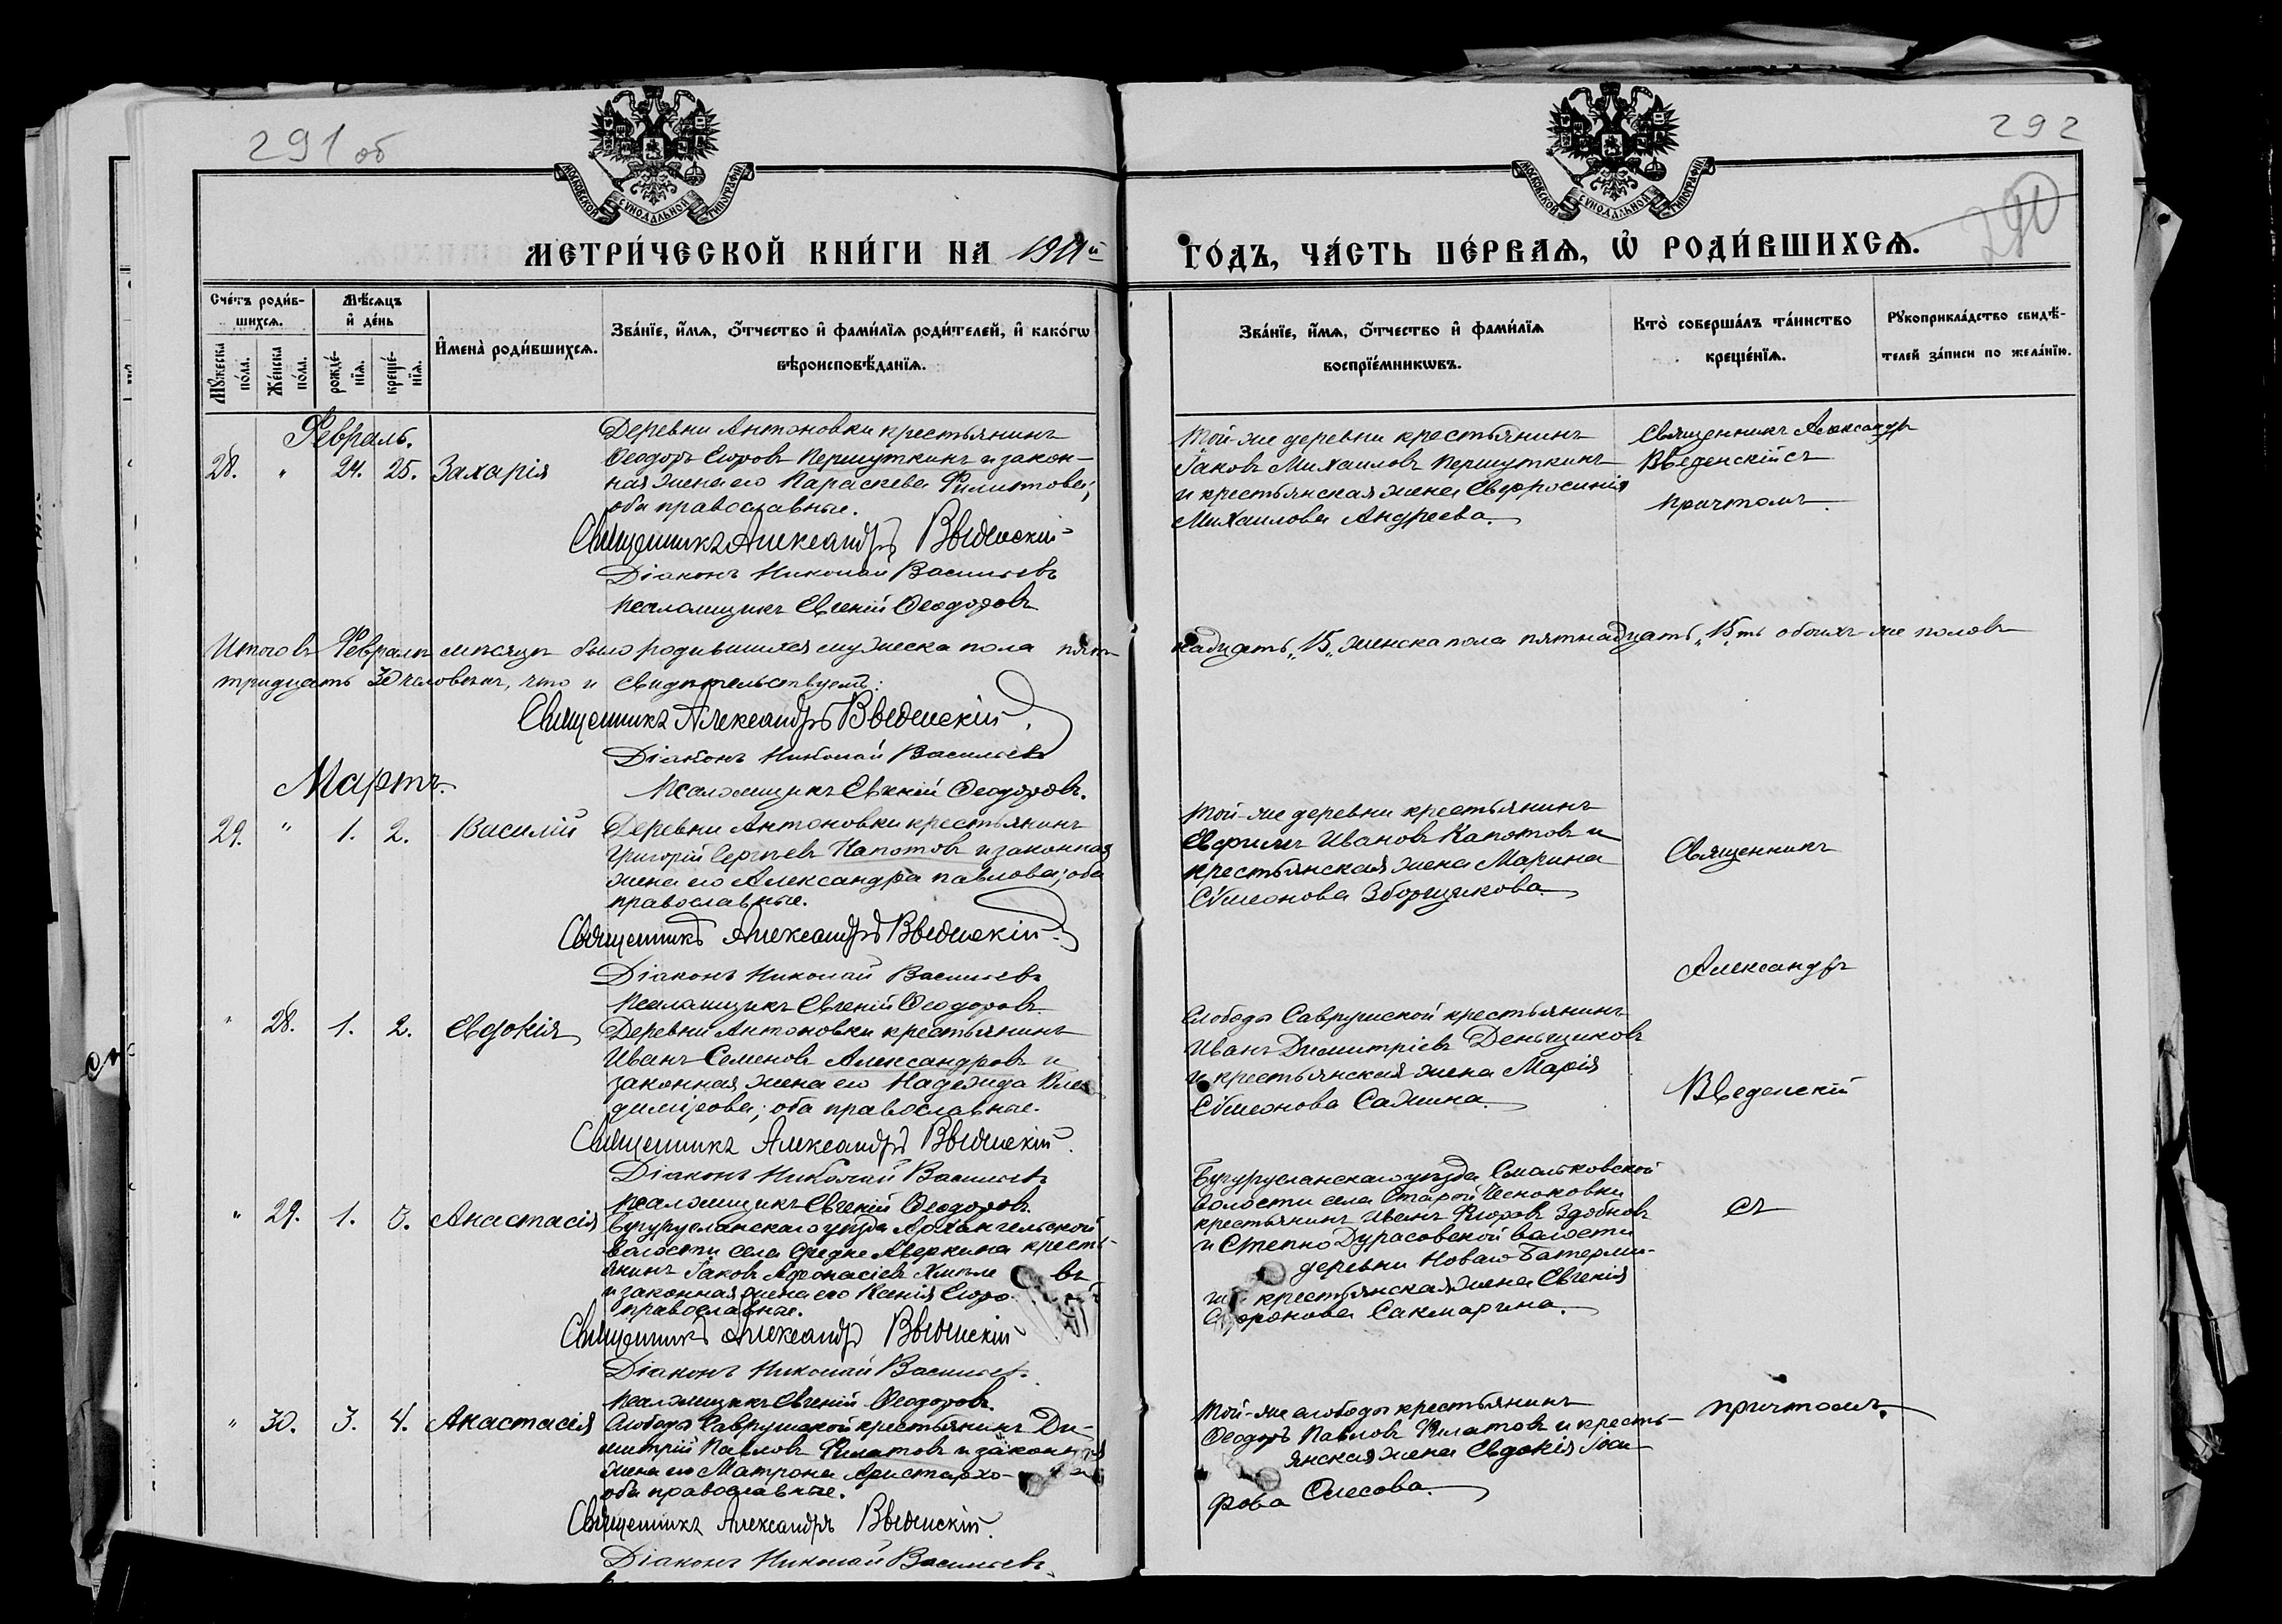 291 об
292
290
МОСКОВСКОЙ СѴНОДАЛЬНОЙ ТИПОГРАФІИ
МОСКОВСКОЙ СѴНОДАЛЬНОЙ ТИПОГРАФІИ
МЕТРИ́ЧЕСКОЙ КНИ́ГИ НА 1911й
ГО́ДЪ, ЧА́СТЬ ПЕ́РВАѦ, Ѡ҆ РОДИ́ВШИХСѦ.
Сче́тъ роди́в-
шихсѧ.
Мꙋ́жеска по́ла.
Же́нска по́ла.
Мѣ́сѧцъ
и҆ де́нь
рожде́-
нїѧ.
креще́-
нїѧ.
И҆мена̀ роди́вшихсѧ.
Зва́нїе, и҆́мѧ, ѻ҆́тчество и҆ фами́лїѧ роди́телей, и҆ како́гѡ
вѣроисповѣ́данїѧ.
Зва́нїе, и҆́мѧ, ѻ҆́тчество и҆ фами́лїѧ
воспрїе́мникѡвъ.
Кто̀ соверша́лъ та́инство
креще́нїѧ.
Рꙋкоприкла́дство свидѣ́-
телей за́писи по жела́нїю.
Февраль.
28. " 24. 25. Захарія
Деревни Антоновки крестьянинъ
Ѳеодоръ Егоровъ Першуткинъ и закон-
ная жена его Параскева Филиппова;
оба православные.
Священникъ Александръ Введенскій
Діаконъ Николай Васильевъ
Псаломщикъ Евгеній Ѳеодоровъ
Той-же деревни крестьянинъ
Іаковъ Михаиловъ Першуткинъ
и крестьянская жена Евфросинія
Михаилова Андреева.
Священникъ Александръ
Введенскій съ
причтомъ.
Итого въ Февралѣ мѣсяцѣ было родившихся мужеска пола пят-
надцать "15" женска пола пятнадцать "15"ть обоихъ-же половъ
тридцать 30 человекъ, что и свидѣтельствуемъ:
Священникъ Александръ Введенскій.
Діаконъ Николай Васильевъ
Псаломщикъ Евгеній Ѳеодоровъ.
Мартъ.
29. " 1. 2. Василій
Деревни Антоновки крестьянинъ
Григорій Сергѣевъ Капотовъ и законная
жена его Александра Павлова; оба
православные.
Священникъ Александръ Введенскій.
Діаконъ Николай Васильевъ
Псаломщикъ Евгеній Ѳеодоровъ.
Той-же деревни крестьянинъ
Евфимъ Ивановъ Капотовъ и
крестьянская жена Марина
Сѵмеонова Зборщикова.
Священникъ
Александръ
" 28. 1. 2. Евдокія
Деревни Антоновки крестьянинъ
Иванъ Семеновъ Александровъ и
законная жена его Надежда Вла
димірова; оба православные.
Священникъ Александръ Введенскій.
Діаконъ Николай Васильевъ
Псаломщикъ Евгеній Ѳеодоровъ.
Слободы Саврушской крестьянинъ
Иванъ Димитріевъ Деньщиковъ
и крестьянская жена Марія
Сѵмеонова Сажина.
Введенскій
" 29. 1. 3. Анастасія
Бугурусланскаго уѣзда Архангельской
волости села Средне Аверкина кресть-
янинъ Іаковъ Аѳонасіевъ въ
и законная жена его Ксенія Егоро
православные.
Священникъ Александръ Введенскій
Діаконъ Николай Васильевъ.
Псаломщикъ Евгеній Ѳеодоровъ.
Бугурусланскаго уѣзда Смальковской
волости села Старой Чесноковки
крестьянинъ Иванъ Егоровъ Здобновъ
и Степно Дурасовской волости
деревни Новаго
крестьянская жена Евгенія
Сакмарина.
съ
" 30. 3. 4. Анастасія
Слободы Саврушской крестьянинъ Ди-
митрій Павловъ Филатовъ и законная
жена его Матрона Аристархо-
оба православные.
Священникъ Александръ Введенскій.
Діаконъ Николай Васильевъ
Той-же слободы крестьянинъ
Ѳеодоръ Павловъ Филатовъ и кресть-
янская жена Евдокія Іоси
фова
причтомъ.